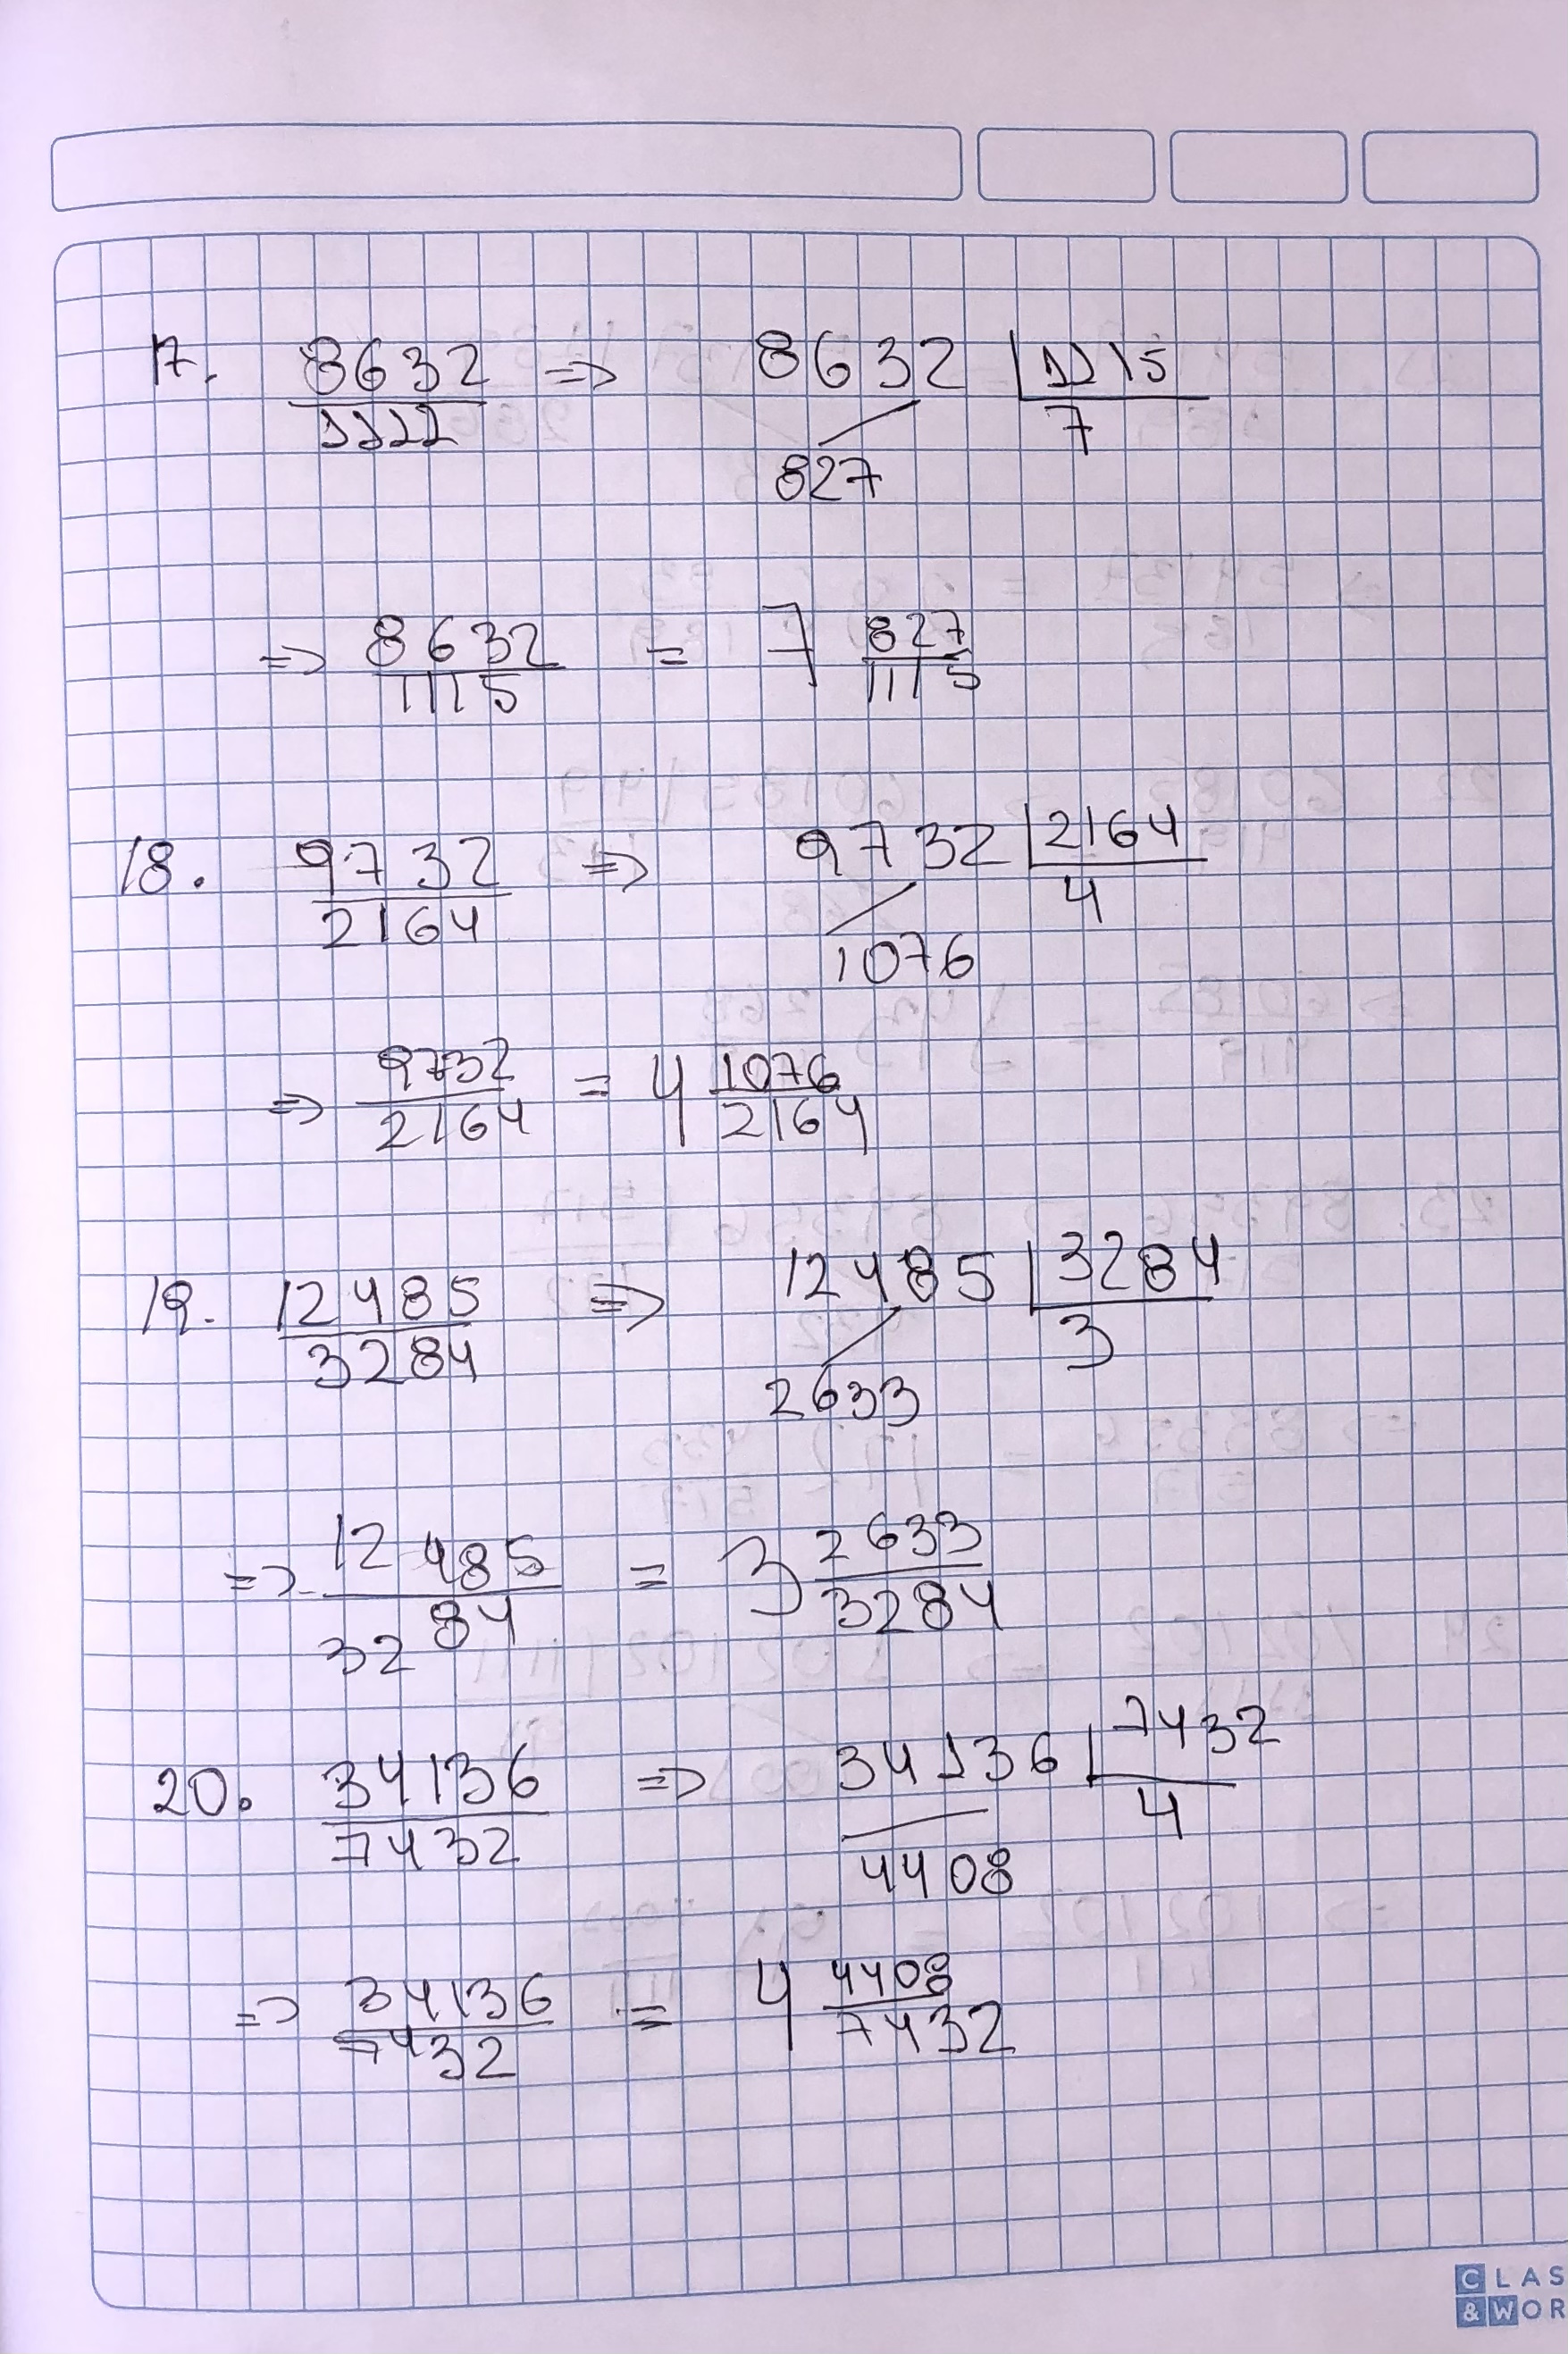 17. 8632/1122 => 8632 | 1115
7
827
=> 8632/1115 = 7 827/1115
18. 9732/2164 => 9732 | 2164
4
1076
=> 9732/2164 = 4 1076/2164
19. 12485/3284 => 12485 | 3284
3
2633
=> 12485/3284 = 3 2633/3284
20. 34136/7432 => 34136 | 7432
4
4408
=> 34136/7432 = 4 4408/7432
CLAS
&WOR